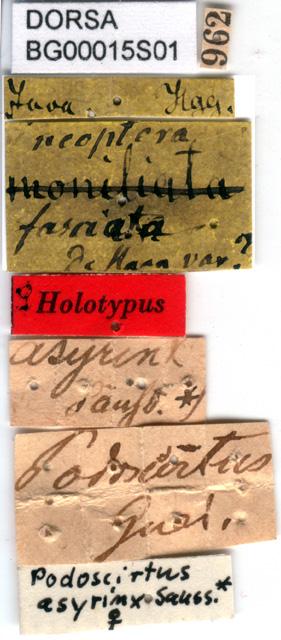 DORSA
BG00015S01
962
Java. Hag.
neoptera
moniliata
fasciata
De Haan var.?
Holotypus
asyrinx
Sauss. *
Podoscirtus
Guer.
Podoscirtus
asyrinx Sauss.*
♀